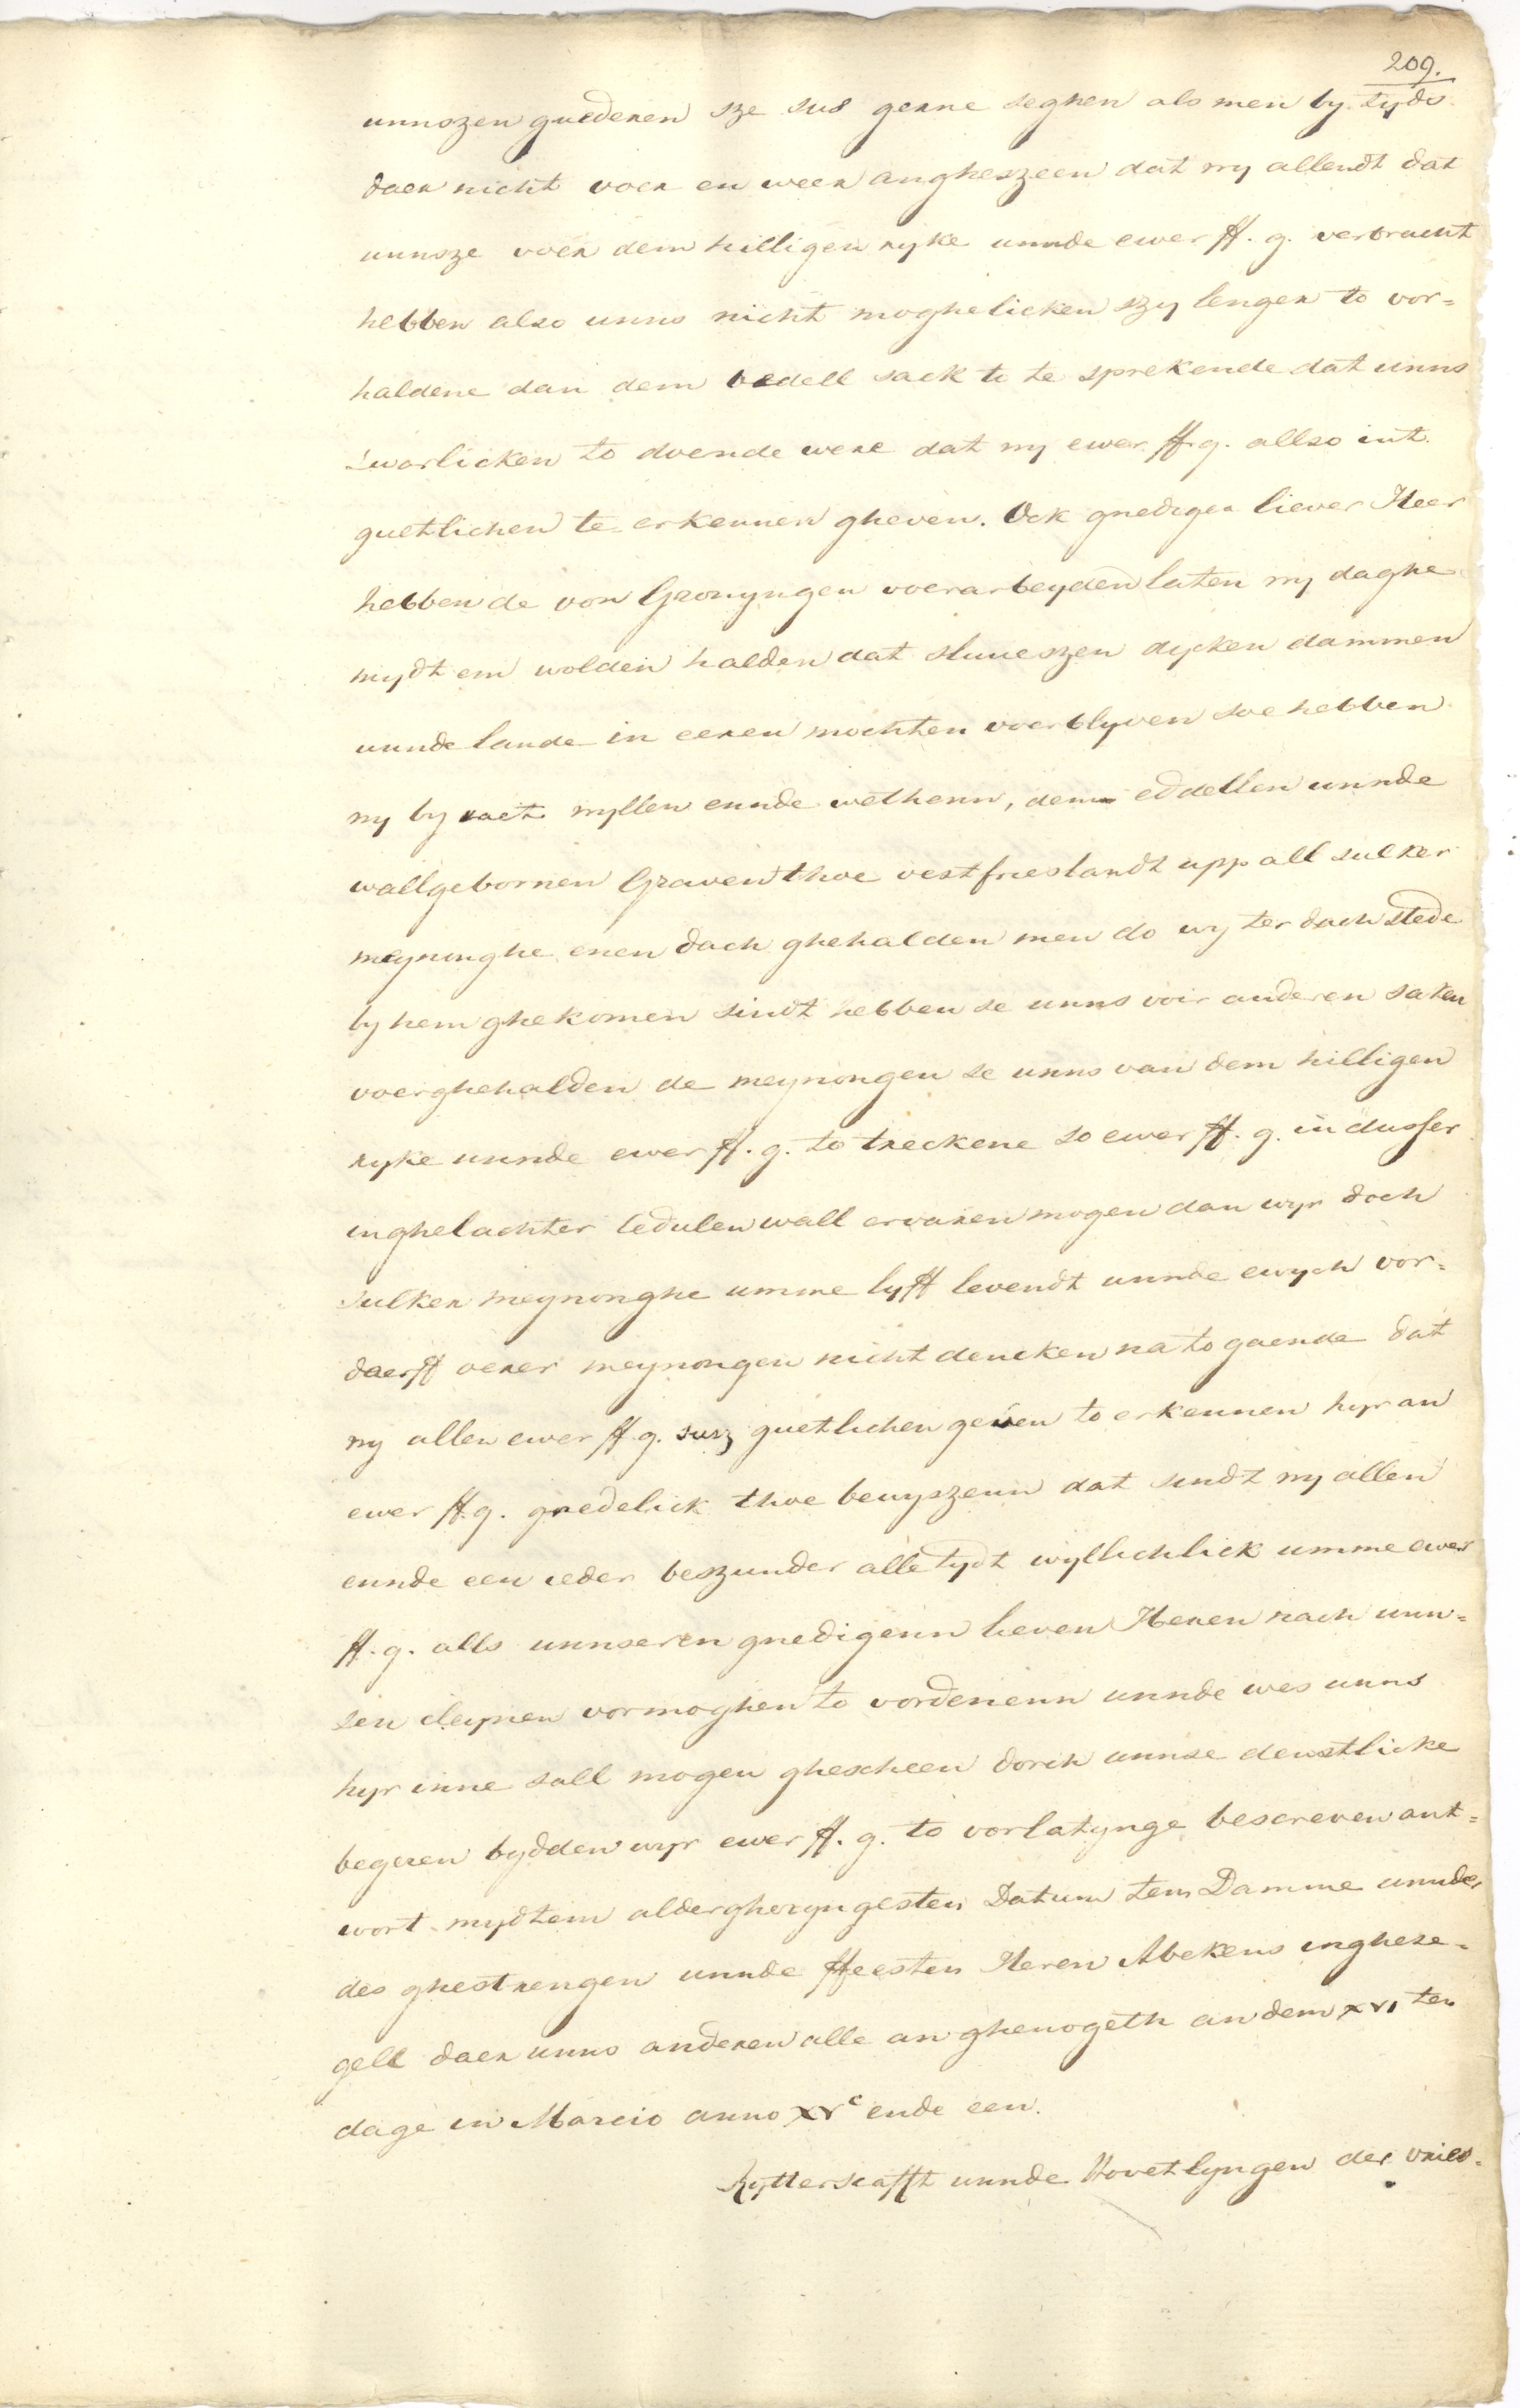 209.
unnszen guederen sze sus gerne seghen als men by tyds
daer nicht voer en weer angheszeen dat ny allendt dat
unnsze voer dem hilligen ryke unnde ewer ff. g. verbracht
hebben also unns nicht moghelicken szy lenger to vor=
haldene dan dem bedell sack to te sprekende dat unns
swarlicken to doende were dat ny ewer ff. g. allso int
guetlichen te erkennen gheven. Ock gnediger liever Heer
hebben de von Gronyngen voerarbeyden laten ny daghe
mydt em wolden halden dat slueszen dycken dammen
unnde lande in eeren mochten voerblyven soe hebben
ny by raet wyllen ennde wethenn, dem eddellen unnde
wallgebornen Graven thoe oestfrieslandt upp all sulker
meynonghe enen dach ghehalden men do wy ter dach stede
by hem ghekomen sindt hebben se unns voir anderen saken
voerghehalden de meynongen se unns van dem hilligen
ryke unnde ewer ff. g. to treckene so ewer ff. g. in dusser
inghelachter cedulen wall ervaren mogen dan wyr doch
sulker meynonghe umme lyff levendt unnde ewych vor=
daerff oerer meynongen nicht dencken na to gaende dat
ny allen ewer ff. g. susz guetlichen geven to erkennen hyr an
ewer ff. g. gnedelick thoe bewyszenn dat sindt ny allen
ennde een ieder beszunder alle tydt wyllichlick umme ewer
ff. g. alls unnseren gnedigenn lieven Heren nach unn=
sen cleynen vormoghen to vordenenn unnde wes unns
hyr inne sall mogen ghescheen dorch unnse denstlicke
begeren bydden wyr ewer ff. g. to vorlatynge bescreven ant=
wort mydtem alderghezyngesten Datum tem Damme unnder
des ghestrengen unnde ffeesten Heren Abekens inghese=
gell daer unns anderen alle an ghenogeth an dem xvi ten
dage in Marcio anno xvc ende een.
Rytterscafft unnde Hovetlyngen der vries=